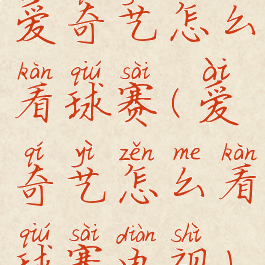 爱奇艺怎么
kàn qiú sài ài
看球赛(爱
qí yì zěn me kàn
奇艺怎么看
qiú sài diàn shì
球赛电视)